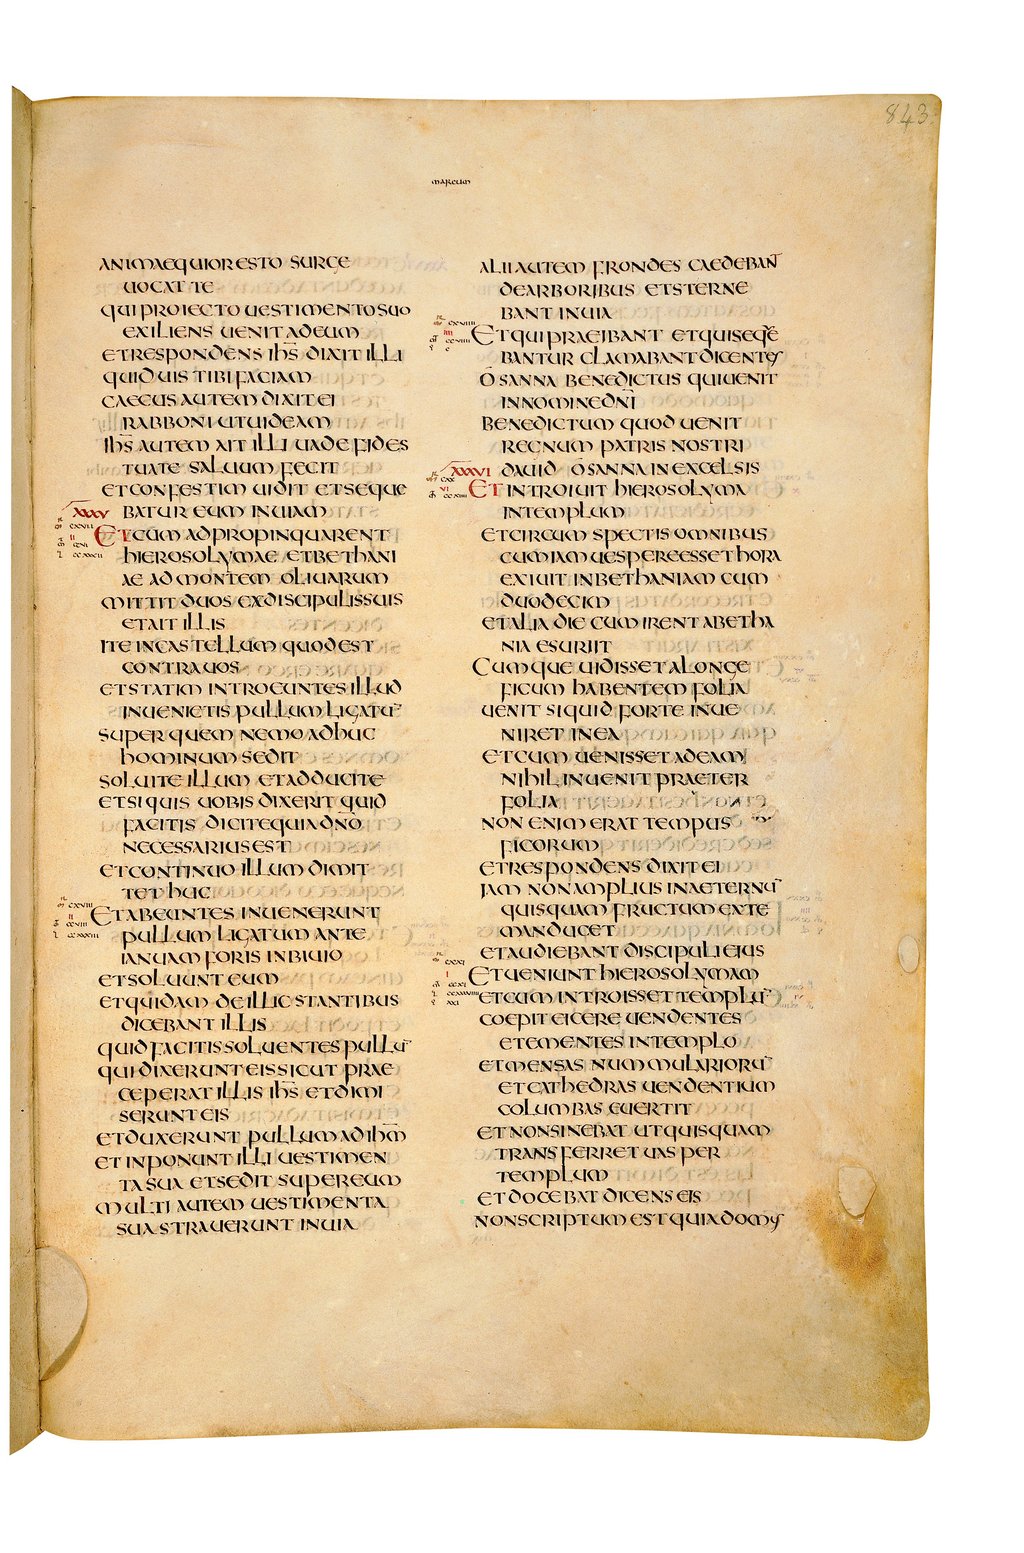 843
MARCUM
ANIMAEQUIOR ESTO SURGE
UOCAT TE
QUI PROIECTO UESTIMENTO SUO
EXILIENS UENIT AD EUM
ET RESPONDENS IHS̄ DIXIT ILLI
QUID UIS TIBI FACIAM
CAECUS AUTEM DIXIT EI
RABBONI UT UIDEAM
IHS̄ AUTEM AIT ILLI UADE FIDES
TUA TE SALUUM FECIT
ET CONFESTIM UIDIT ET SEQUE
XXXV BATUR EUM IN UIAM
ET CUM ADPROPINQUARENT
HIEROSOLYMAE ET BETHANI
AE AD MONTEM OLIUARUM
MITTIT DUOS EX DISCIPULIS SUIS
ET AIT ILLIS
ITE IN CASTELLUM QUOD EST
CONTRA UOS
ET STATIM INTROEUNTES ILLUD
INUENIETIS PULLUM LIGATŪ
SUPER QUEM NEMO ADHUC
HOMINUM SEDIT
SOLUITE ILLUM ET ADDUCITE
ET SI QUIS UOBIS DIXERIT QUID
FACITIS DICITE QUIA DN̄O
NECESSARIUS EST
ET CONTINUO ILLUM DIMIT
TET HUC
ET ABEUNTES INUENERUNT
PULLUM LIGATUM ANTE
IANUAM FORIS IN BIUIO
ET SOLUUNT EUM
ET QUIDAM DE ILLIC STANTIBUS
DICEBANT ILLIS
QUID FACITIS SOLUENTES PULLŪ
QUI DIXERUNT EIS SICUT PRAE
CEPERAT ILLIS IHS̄ ET DIMI
SERUNT EIS
ET DUXERUNT PULLUM AD IHM̄
ET INPONUNT ILLI UESTIMEN
TA SUA ET SEDIT SUPER EUM
MULTI AUTEM UESTIMENTA
SUA STRAUERUNT IN UIA
ALII AUTEM FRONDES CAEDEBANT
DE ARBORIBUS ET STERNE
BANT IN UIA
ET QUI PRAEIBANT ET QUI SEQUE
BANTUR CLAMABANT DICENTES
OSANNA BENEDICTUS QUI UENIT
IN NOMINE DN̄I
BENEDICTUM QUOD UENIT
REGNUM PATRIS NOSTRI
XXXVI DAUID OSANNA IN EXCELSIS
ET INTROIUIT HIEROSOLYMA
IN TEMPLUM
ET CIRCUM SPECTIS OMNIBUS
CUM IAM UESPERE ESSET HORA
EXIUIT IN BETHANIAM CUM
DUODECIM
ET ALIA DIE CUM IRENT A BETHA
NIA ESURIIT
CUMQUE UIDISSET A LONGE
FICUM HABENTEM FOLIA
UENIT SI QUID FORTE INUE
NIRET IN EA
ET CUM UENISSET AD EAM
NIHIL INUENIT PRAETER
FOLIA
NON ENIM ERAT TEMPUS
FICORUM
ET RESPONDENS DIXIT EI
IAM NON AMPLIUS IN AETERNŪ
QUISQUAM FRUCTUM EX TE
MANDUCET
ET AUDIEBANT DISCIPULI EIUS
ET UENIUNT HIEROSOLYMAM
ET CUM INTROISSET TEMPLŪ
COEPIT EICERE UENDENTES
ET EMENTES IN TEMPLO
ET MENSAS NUMMULARIORŪ
ET CATHEDRAS UENDENTIUM
COLUMBAS EUERTIT
ET NON SINEBAT UT QUISQUAM
TRANSFERRET UAS PER
TEMPLUM
ET DOCEBAT DICENS EIS
NON SCRIPTUM EST QUIA DOMUS